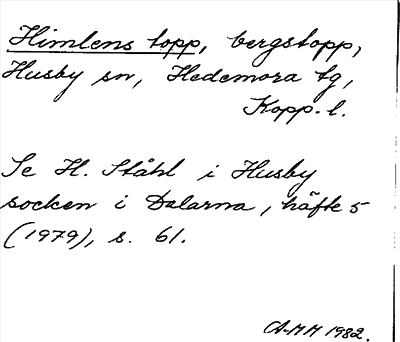 Himlens topp, bergstopp,
Husby sn, Hedemora tg,
Kopp. l.
Se H. Ståhl i Husby
socken i Dalarna, häfte 5
(1979), s. 61.
A-MM 1982.